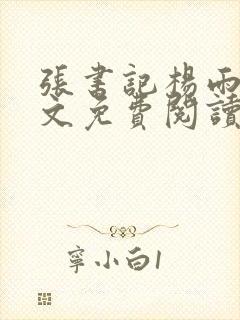 張書記楊雨
文免費閱讀
寧小白1